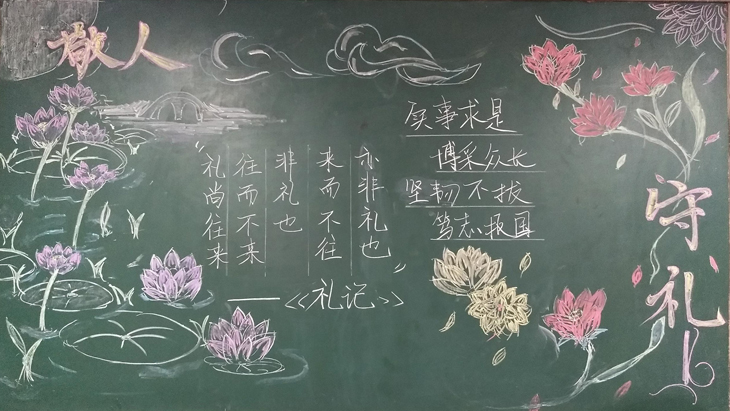 敬人
“礼尚往来
往而不来
非礼也
来而不往
亦非礼也”
——《礼记》
实事求是
博采众长
坚韧不拔
笃志报国
守礼